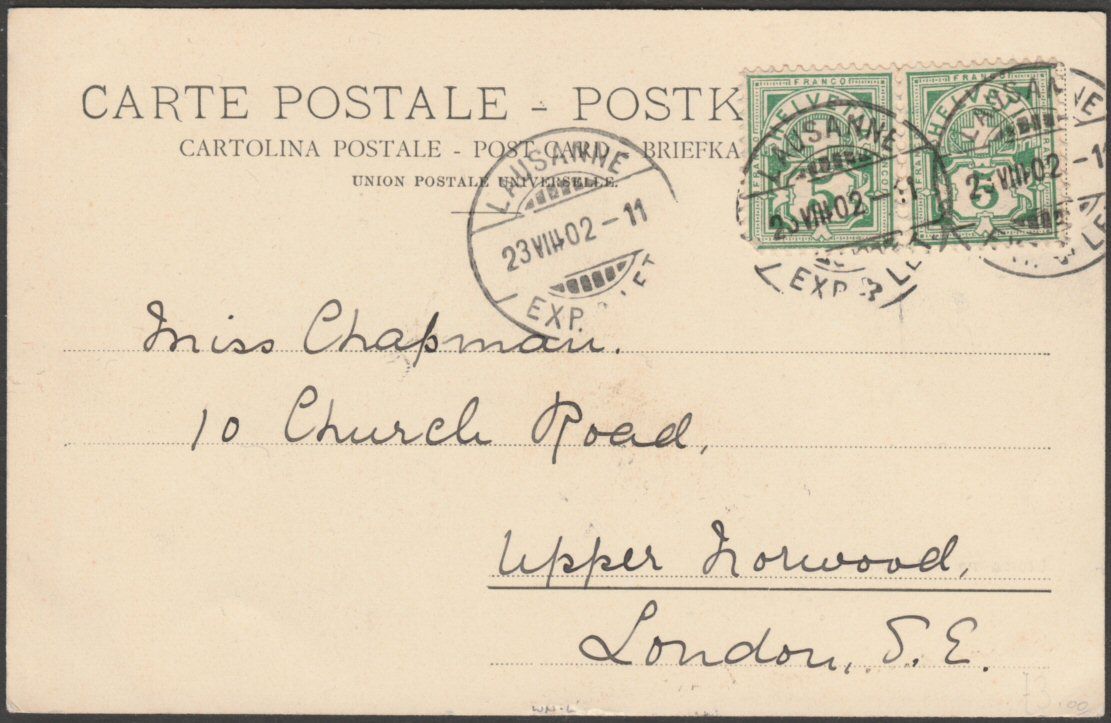 CARTE POSTALE - POSTK
CARTOLINA POSTALE - POST CARD - BRIEFKA
UNION POSTALE UNIVERSELLE.
FRANCO
HELVETIA
5
FRANCO
HELVETIA
5
LAUSANNE
23 VIII 02 - 11
EXP. LET
LAUSANNE
23 VIII 02 - 11
EXP. LET
LAUSANNE
23 VIII 02 - 1
LE
Miss Chapman.
10 Church Road,
Upper Norwood,
London, S.E.
73.00